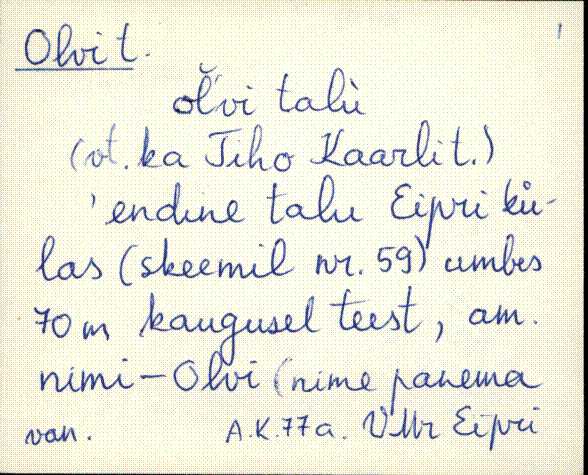 Olvi t. 1
ol̆vi talu̇̀
(vt. ka Tiho Kaarli t.)
'endine talu Eipri kü-
las (skeemil nr. 59) umbes
70 m kaugusel teest, am.
nimi – Olvi (nime panema
van. A.K. 77 a. VMr Eipri